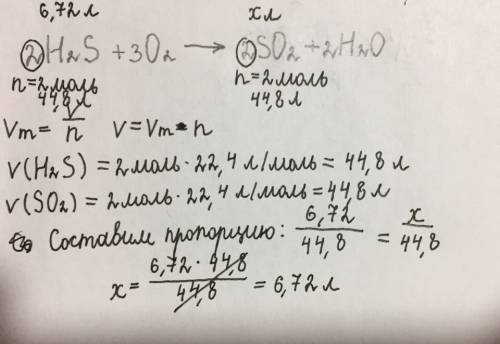 6,72 л x л
2H₂S + 3O₂ → 2SO₂ + 2H₂O
n = 2 моль n = 2 моль
44,8 л 44,8 л
Vm = V/n V = Vm · n
V(H₂S) = 2 моль · 22,4 л/моль = 44,8 л
V(SO₂) = 2 моль · 22,4 л/моль = 44,8 л
Составим пропорцию: 6,72/44,8 = x/44,8
x = 6,72 · 44,8/44,8 = 6,72 л